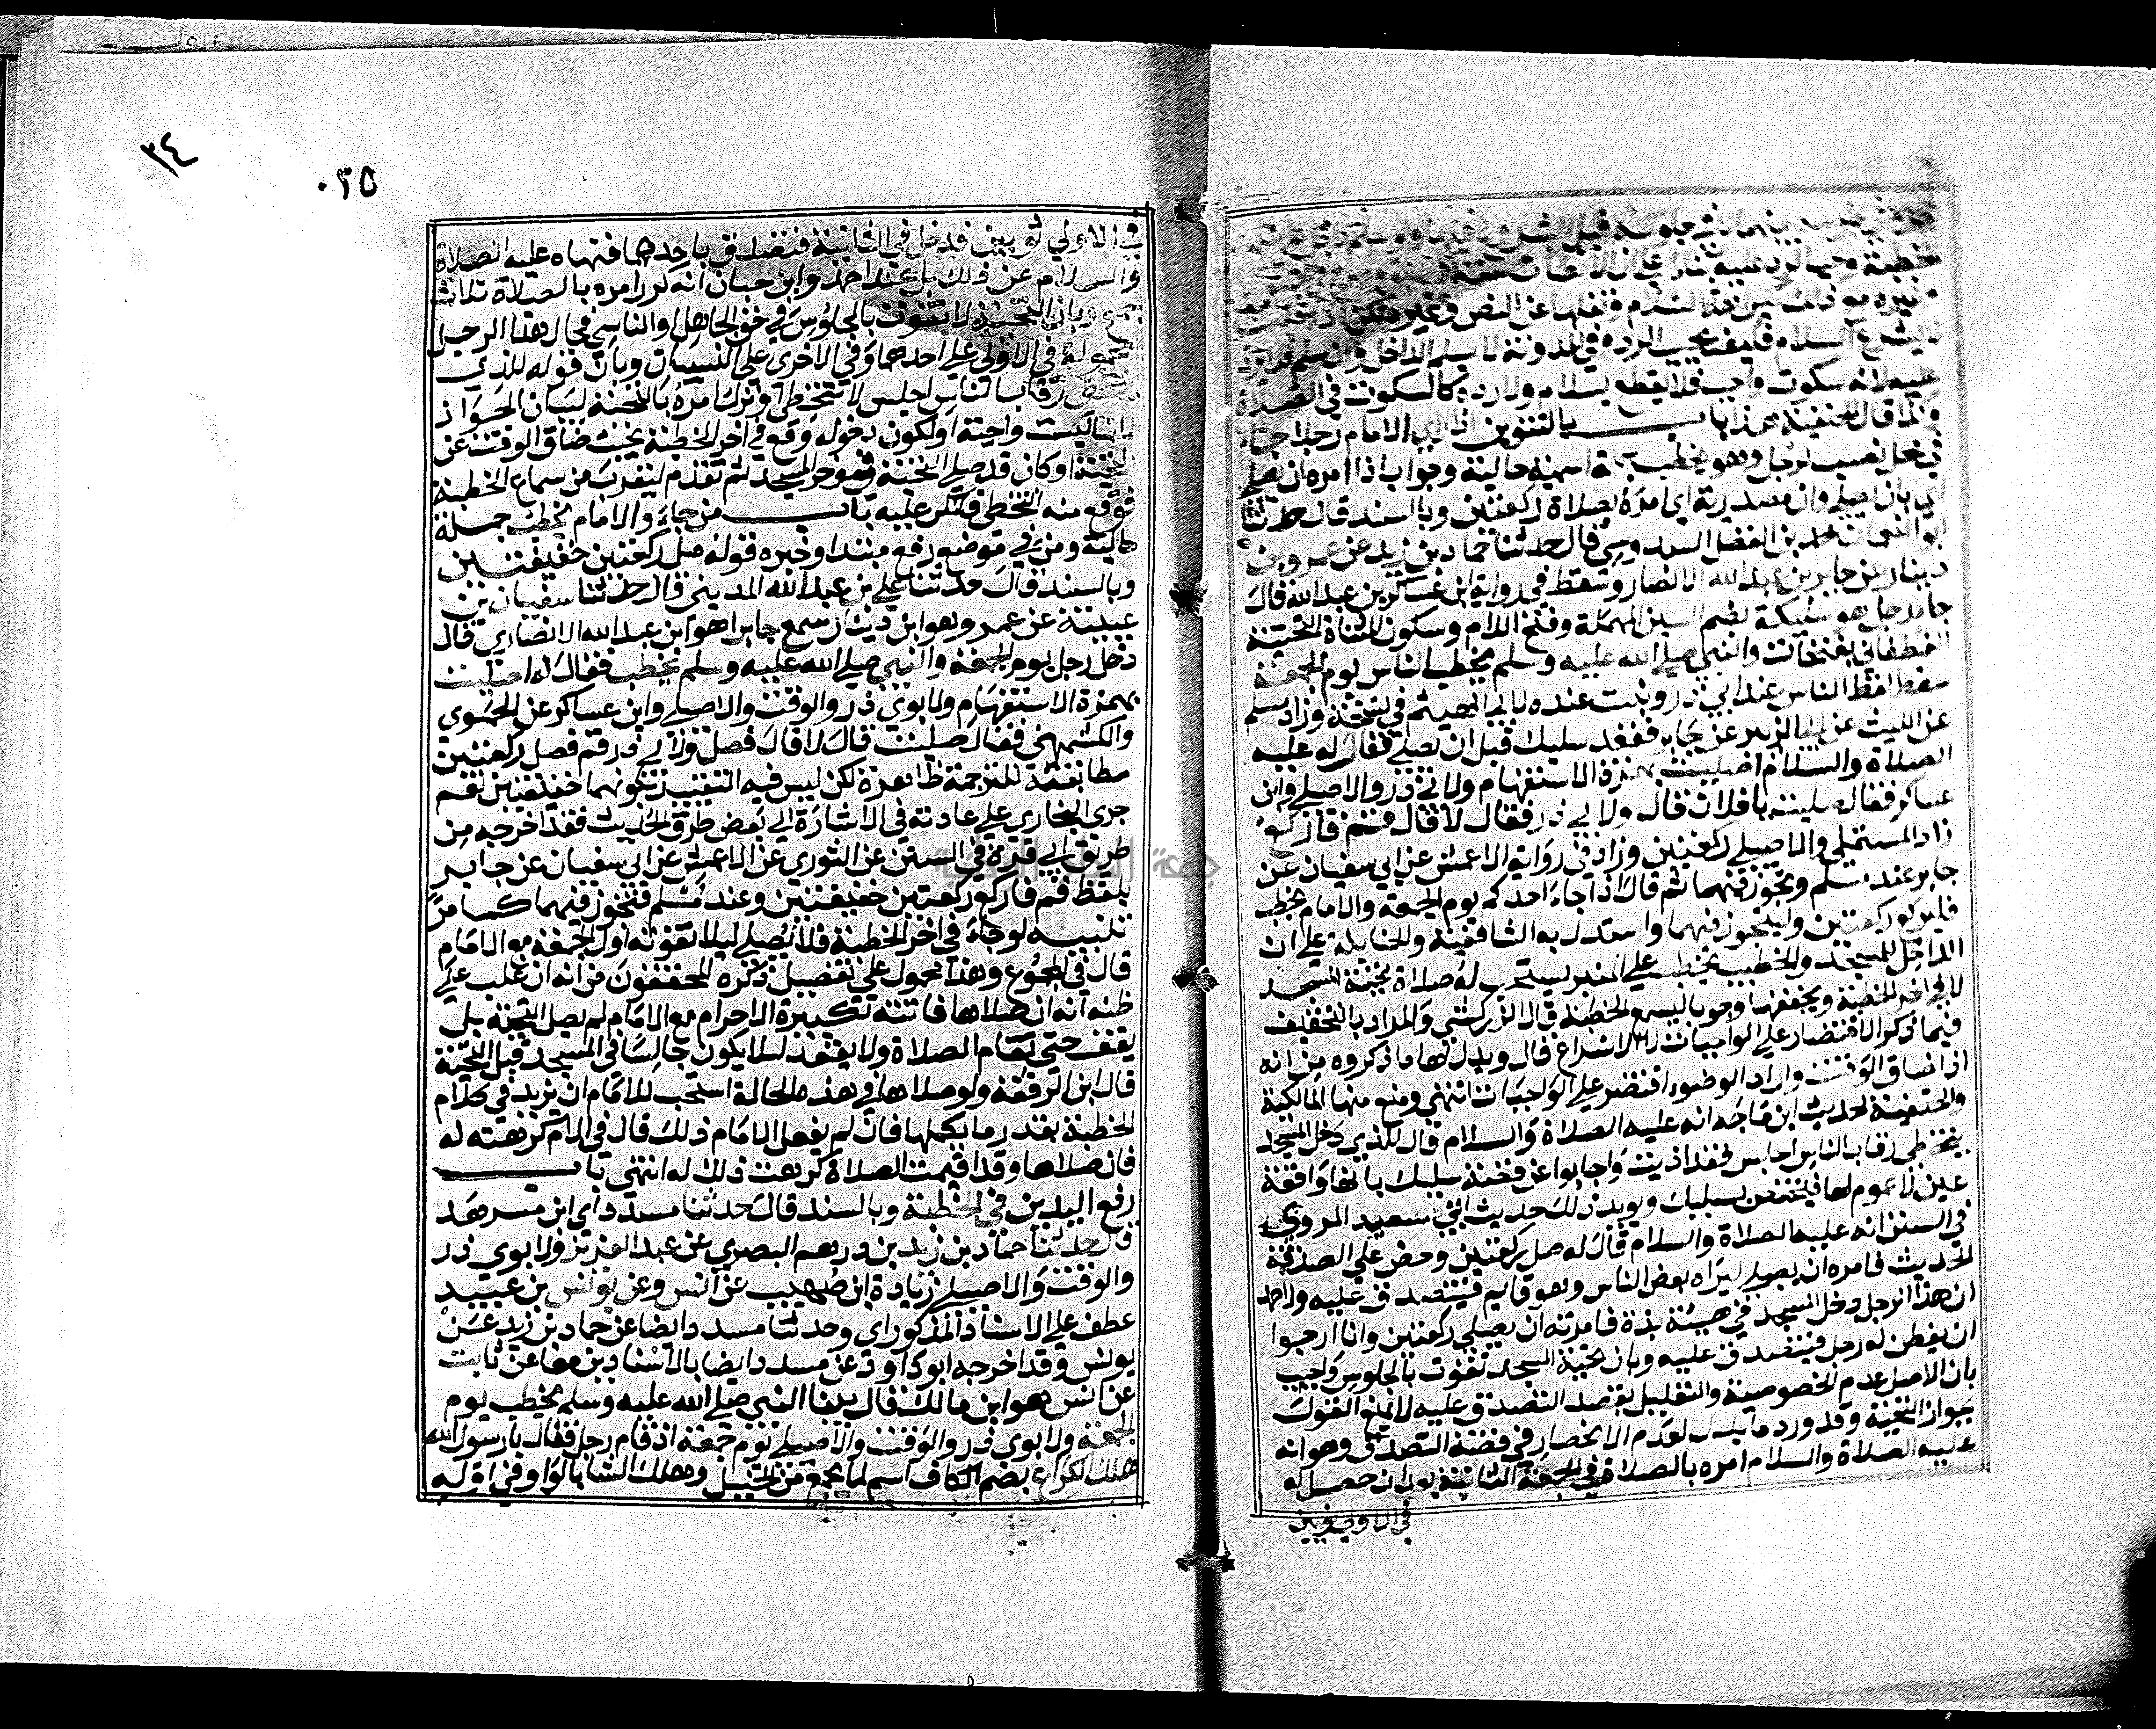 الخطبة
عليه لانه سكوت واجب فلا يقطع بسلام ولا رده كالسكوت في الصلاة
وكذا قال الحنفية هذا باب بالتنوين اذا راي الامام رجلا جاء
في محل نصب لرجل وهو يخطب جملة اسمية حالية وجواب اذا امره ان يصلي
اي بان يصلي وان مصدرية اي امره بصلاة ركعتين وبالسند قال حدثنا
ابو النعمان محمد بن الفضل السدوسي قال حدثنا حماد بن زيد عن عمرو بن
دينار عن جابر بن عبد الله الانصار وسقط في رواية ابن عساكر بن عبد الله قال
جا رجل هو سليكة بضم السين المهملة وفتح اللام وسكون المثناة التحتية
الغطفاني بفتحات والنبي صلي الله عليه وسلم يخطب الناس يوم الجمعة
سقط لفظ الناس عند ابي ذر وثبت عنده لابي الهيثم في نسخة وزاد مسلم
عن الليث عن ابي الزبير عن جابر فقعد سليك قبل ان يصلي فقال له عليه
الصلاة والسلام اصليت بهمزة الاستفهام ولابي ذر والاصيلي وابن
عساكر فقال صليت يا فلان قال ولابي ذر فقال لا قال قم فاركع
زاد المستملي والاصيلي ركعتين وزاد في رواية الاعمش عن ابي سفيان عن
جابر عند مسلم وتجوز فيهما ثم قال اذا جاء احدكم يوم الجمعة والامام يخطب
فليركع ركعتين وليتجوز فيهما واستدل به الشافعية والحنابلة علي ان
الداخل للمسجد والخطيب يخطب علي المنبر يستحب له صلاة تحية المسجد
لا في اخر الخطبة ويخففها وجوبا ليسمع الخطبة قال الزركشي والمراد بالتخفيف
فيما ذكر الاقتصار علي الواجبات لا الاسراع قال ويدل لها ما ذكروه من انه
اذا ضاق الوقت واراد الوضوء اقتصر علي الواجبات انتهي ومنع منها المالكية
والحنفية لحديث ابن ماجه انه عليه الصلاة والسلام قال للذي دخل المسجد
يتخطي رقاب الناس اجلس فقد اذيت واجابوا عن قصة سليك بانها واقعة
عين لا عموم لها فيختص بسليك ويويد ذلك حديث ابي سعيد المروي
في السنن انه عليه الصلاة والسلام قال له صل ركعتين وحض علي الصدقة
لحديث فامره ان يصلي ليراه بعض الناس وهو قايم فيتصدق عليه ولاحمد
ان هذا الرجل دخل المسجد في هيئة بذة فامرته ان يصلي ركعتين وانا ارجوا
ان يفطن له رجل فيتصدق عليه وبان تحية المسجد تفوت بالجلوس واجيب
بان الاصل عدم الخصوصية والتعليل بقصد التصدق عليه لا يمنع القول
بجواز التحية وقد ورد ما يدل لعدم الانحصار في قصة التصدق وهو انه
عليه الصلاة والسلام امره بالصلاة في الجمعة الثانية بعد ان حصل له
في الاولي ثوبين
٣٤
٠٣٥
في الاولي ثوبين فدخل في الثانية فتصدق باحدهما فنهاه عليه الصلاة
والسلام عن ذلك بل عند احمد وابن حبان انه كرر امره بالصلاة ثلاث
جمع وبان التحية لا تفوت بالجلوس في حق الجاهل او الناسي فحال هذا الرجل
محمولة في الاولي علي احدهما وفي الاخري علي النسيان وبان قوله للذي
يتخطي رقاب الناس اجلس لا تتخطي او ترك امره بالتحية لبيان الجواز
فانها ليست واجبة او لكون دخوله وقع في اخر الخطبة بحيث ضاق الوقت عن
التحية او كان قد صلي التحية في موخر المسجد ثم تقدم ليقرب من سماع الخطبة
فوقع منه التخطي فانكر عليه باب من جاء والامام يخطب جملة
حالية ومن في موضع رفع مبتدا وخبره قوله صل ركعتين خفيفتين
وبالسند قال حدثنا علي بن عبد الله المديني قال حدثنا سفيان بن
عيينة عن عمرو هو ابن دينار سمع جابرا هو ابن عبد الله الانصاري قال
دخل رجل يوم الجمعة والنبي صلي الله عليه وسلم يخطب فقال له اصليت
بهمزة الاستفهام ولابوي ذر والوقت والاصيلي وابن عساكر عن الحموي
والكشميهني فقال صليت قال لا قال فصل ولابي ذر قم فصل ركعتين
مطابقته للترجمة ظاهرة لكن ليس فيه التقييد بكونهما خفيفتين نعم
جري البخاري علي عادته في الاشارة الي بعض طرق الحديث فقد اخرجه من
طريق ابي قرة في السنن عن الثوري عن الاعمش عن ابي سفيان عن جابر
بلفظ قم فاركع ركعتين خفيفتين وعند مسلم فتجوز فيهما كما مر
تنبيه لو جاء في اخر الخطبة فلا يصلي ليلا تفوته اول الجمعة مع الامام
قال في المجموع وهذا محمول علي تفصيل ذكره المحققون من انه ان غلب علي
ظنه انه ان صلاها فاتته تكبيرة الاحرام مع الامام لم يصل التحية بل
يقف حتي تقام الصلاة ولا يقعد ليلا يكون جالسا في المسجد قبل التحية
قال ابن الرفعة ولو صلاها في هذه الحالة استحب للامام ان يزيد في كلام
الخطبة بقدر ما يكملها فان لم يفعل الامام ذلك قال في الام كرهته له
فان صلاها وقد اقيمت الصلاة كرهت ذلك له انتهي باب
رفع اليدين في الخطبة وبالسند قال حدثنا مسدد اي ابن مسرهد
قال حدثنا حماد بن زيد بن درهم البصري عن عبد العزيز ولابوي ذر
والوقت والاصيلي زيادة ابن صهيب عن انس وعن يونس بن عبيد
عطف علي الاسناد المذكور اي وحدثنا مسدد ايضا عن حماد بن زيد عن
يونس وقد اخرجه ابو داود عن مسدد ايضا بالاسنادين معا عن ثابت
عن انس هو ابن مالك قال بينا النبي صلي الله عليه وسلم يخطب يوم
الجمعة ولابوي ذر والوقت والاصيلي يوم جمعة اذ قام رجل فقال يا رسول الله
هلك الكراع بضم الكاف اسم لما يجمع من الخيل وهلك الشا بالواو في اوله